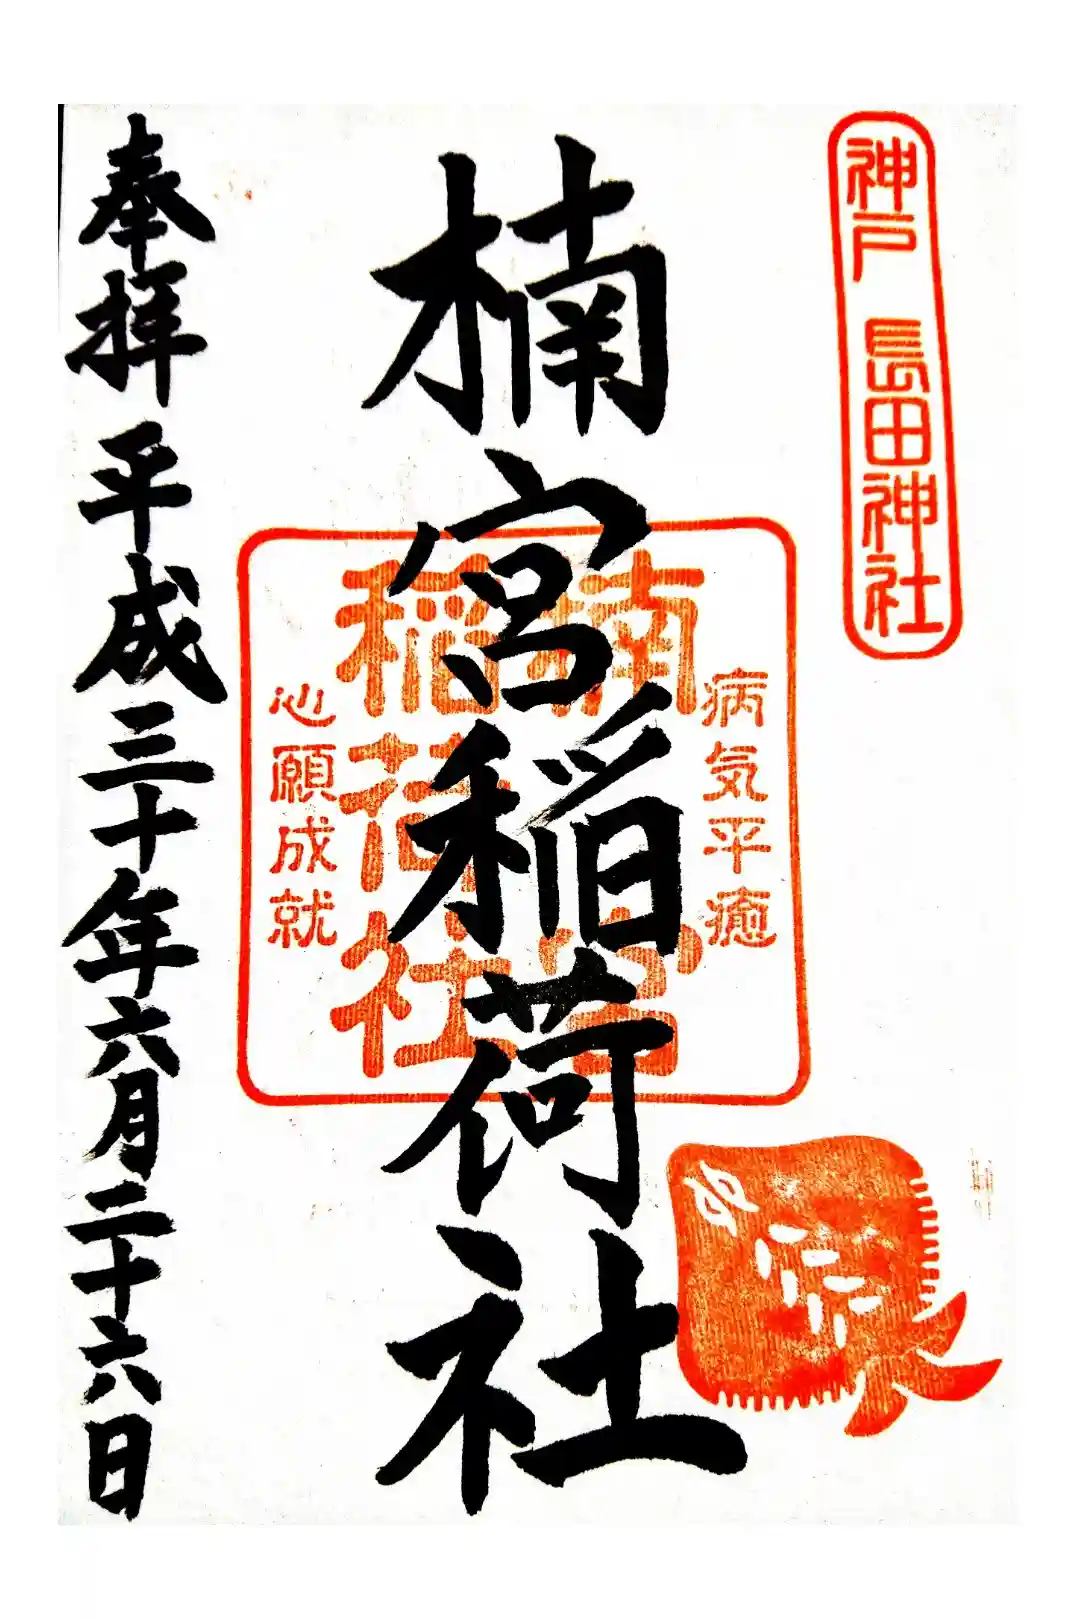 神戸 長田神社
病気平癒
楠宮
稲荷社
心願成就
楠宮稲荷社
奉拝 平成三十年六月二十六日